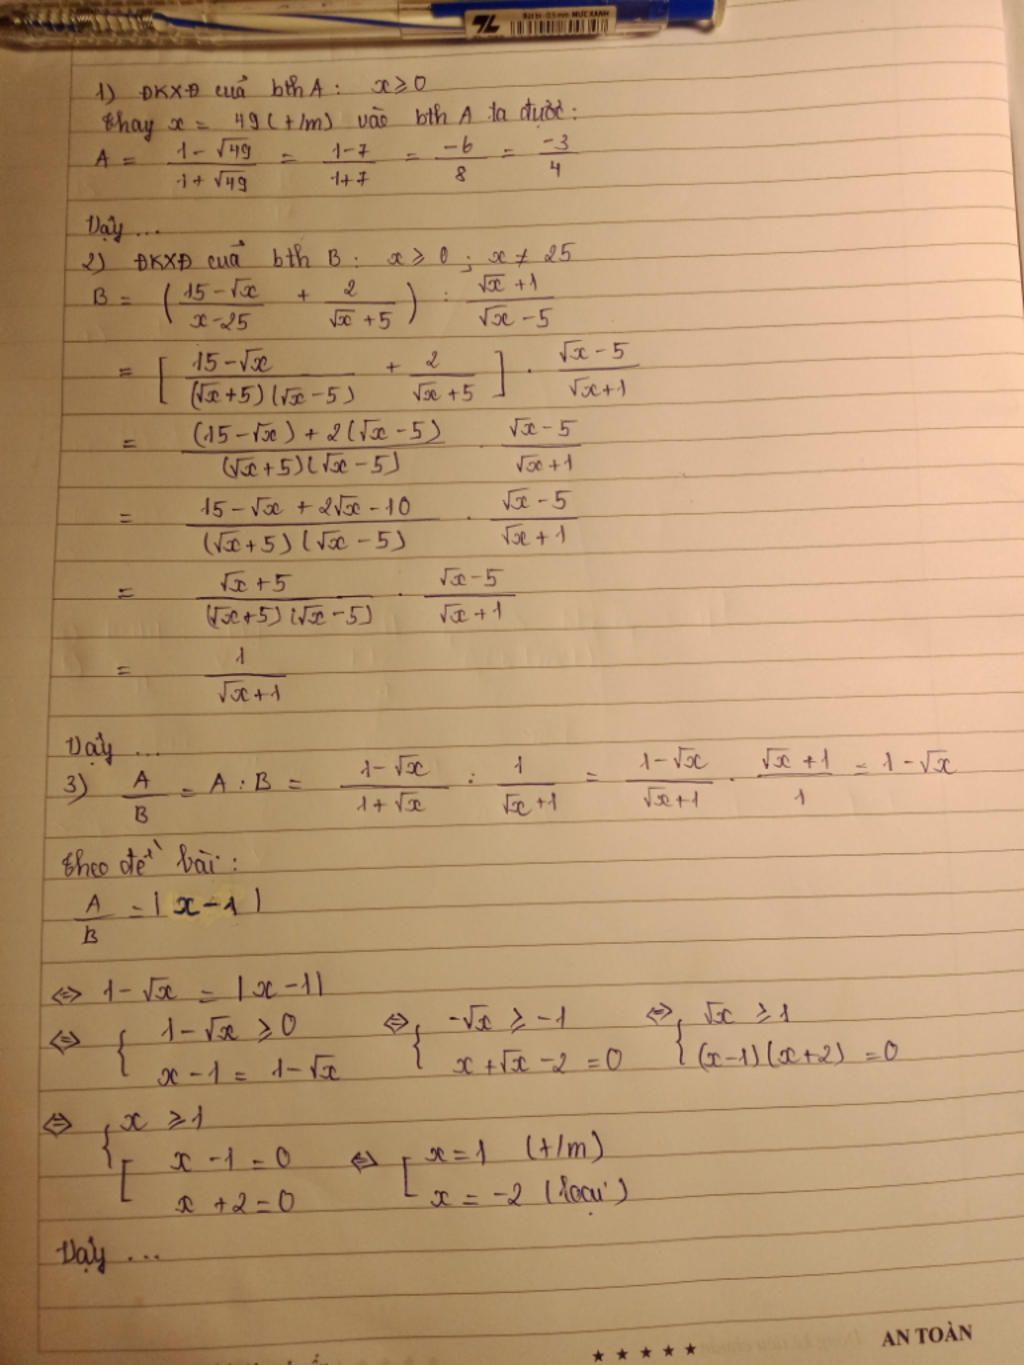 Bút bi - 0.5 mm MỰC XANH
1) ĐKXĐ của bth A : x ≥ 0
Thay x = 49 (t/m) vào bth A ta được :
A = (1 - √49)/(1 + √49) = (1-7)/(1+7) = -6/8 = -3/4
Vậy ...
2) ĐKXĐ của bth B : x ≥ 0 ; x ≠ 25
B = ((15 - √x)/(x - 25) + 2/(√x + 5)) : (√x + 1)/(√x - 5)
= [(15 - √x)/((√x + 5)(√x - 5)) + 2/(√x + 5)] . (√x - 5)/(√x + 1)
= ((15 - √x) + 2(√x - 5))/((√x + 5)(√x - 5)) . (√x - 5)/(√x + 1)
= (15 - √x + 2√x - 10)/((√x + 5)(√x - 5)) . (√x - 5)/(√x + 1)
= (√x + 5)/((√x + 5)(√x - 5)) . (√x - 5)/(√x + 1)
= 1/(√x + 1)
Vậy ...
3) A/B = A : B = (1 - √x)/(1 + √x) : 1/(√x + 1) = (1 - √x)/(√x + 1) . (√x + 1)/1 = 1 - √x
Theo đề bài :
A/B = |x - 1|
⇔ 1 - √x = |x - 1|
⇔ { 1 - √x ≥ 0 ⇔ { -√x ≥ -1 ⇔ { √x ≥ 1
x - 1 = 1 - √x x + √x - 2 = 0 (x - 1)(x + 2) = 0
⇔ { x ≥ 1
[ x - 1 = 0 ⇔ [ x = 1 (t/m)
x + 2 = 0 x = -2 (loại)
Vậy ...
★ ★ ★ ★ ★ AN TOÀN